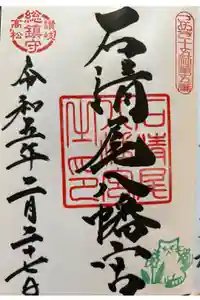 讃岐
総鎮守
高松
石清尾八幡宮
石清尾
令和五年二月二十七日